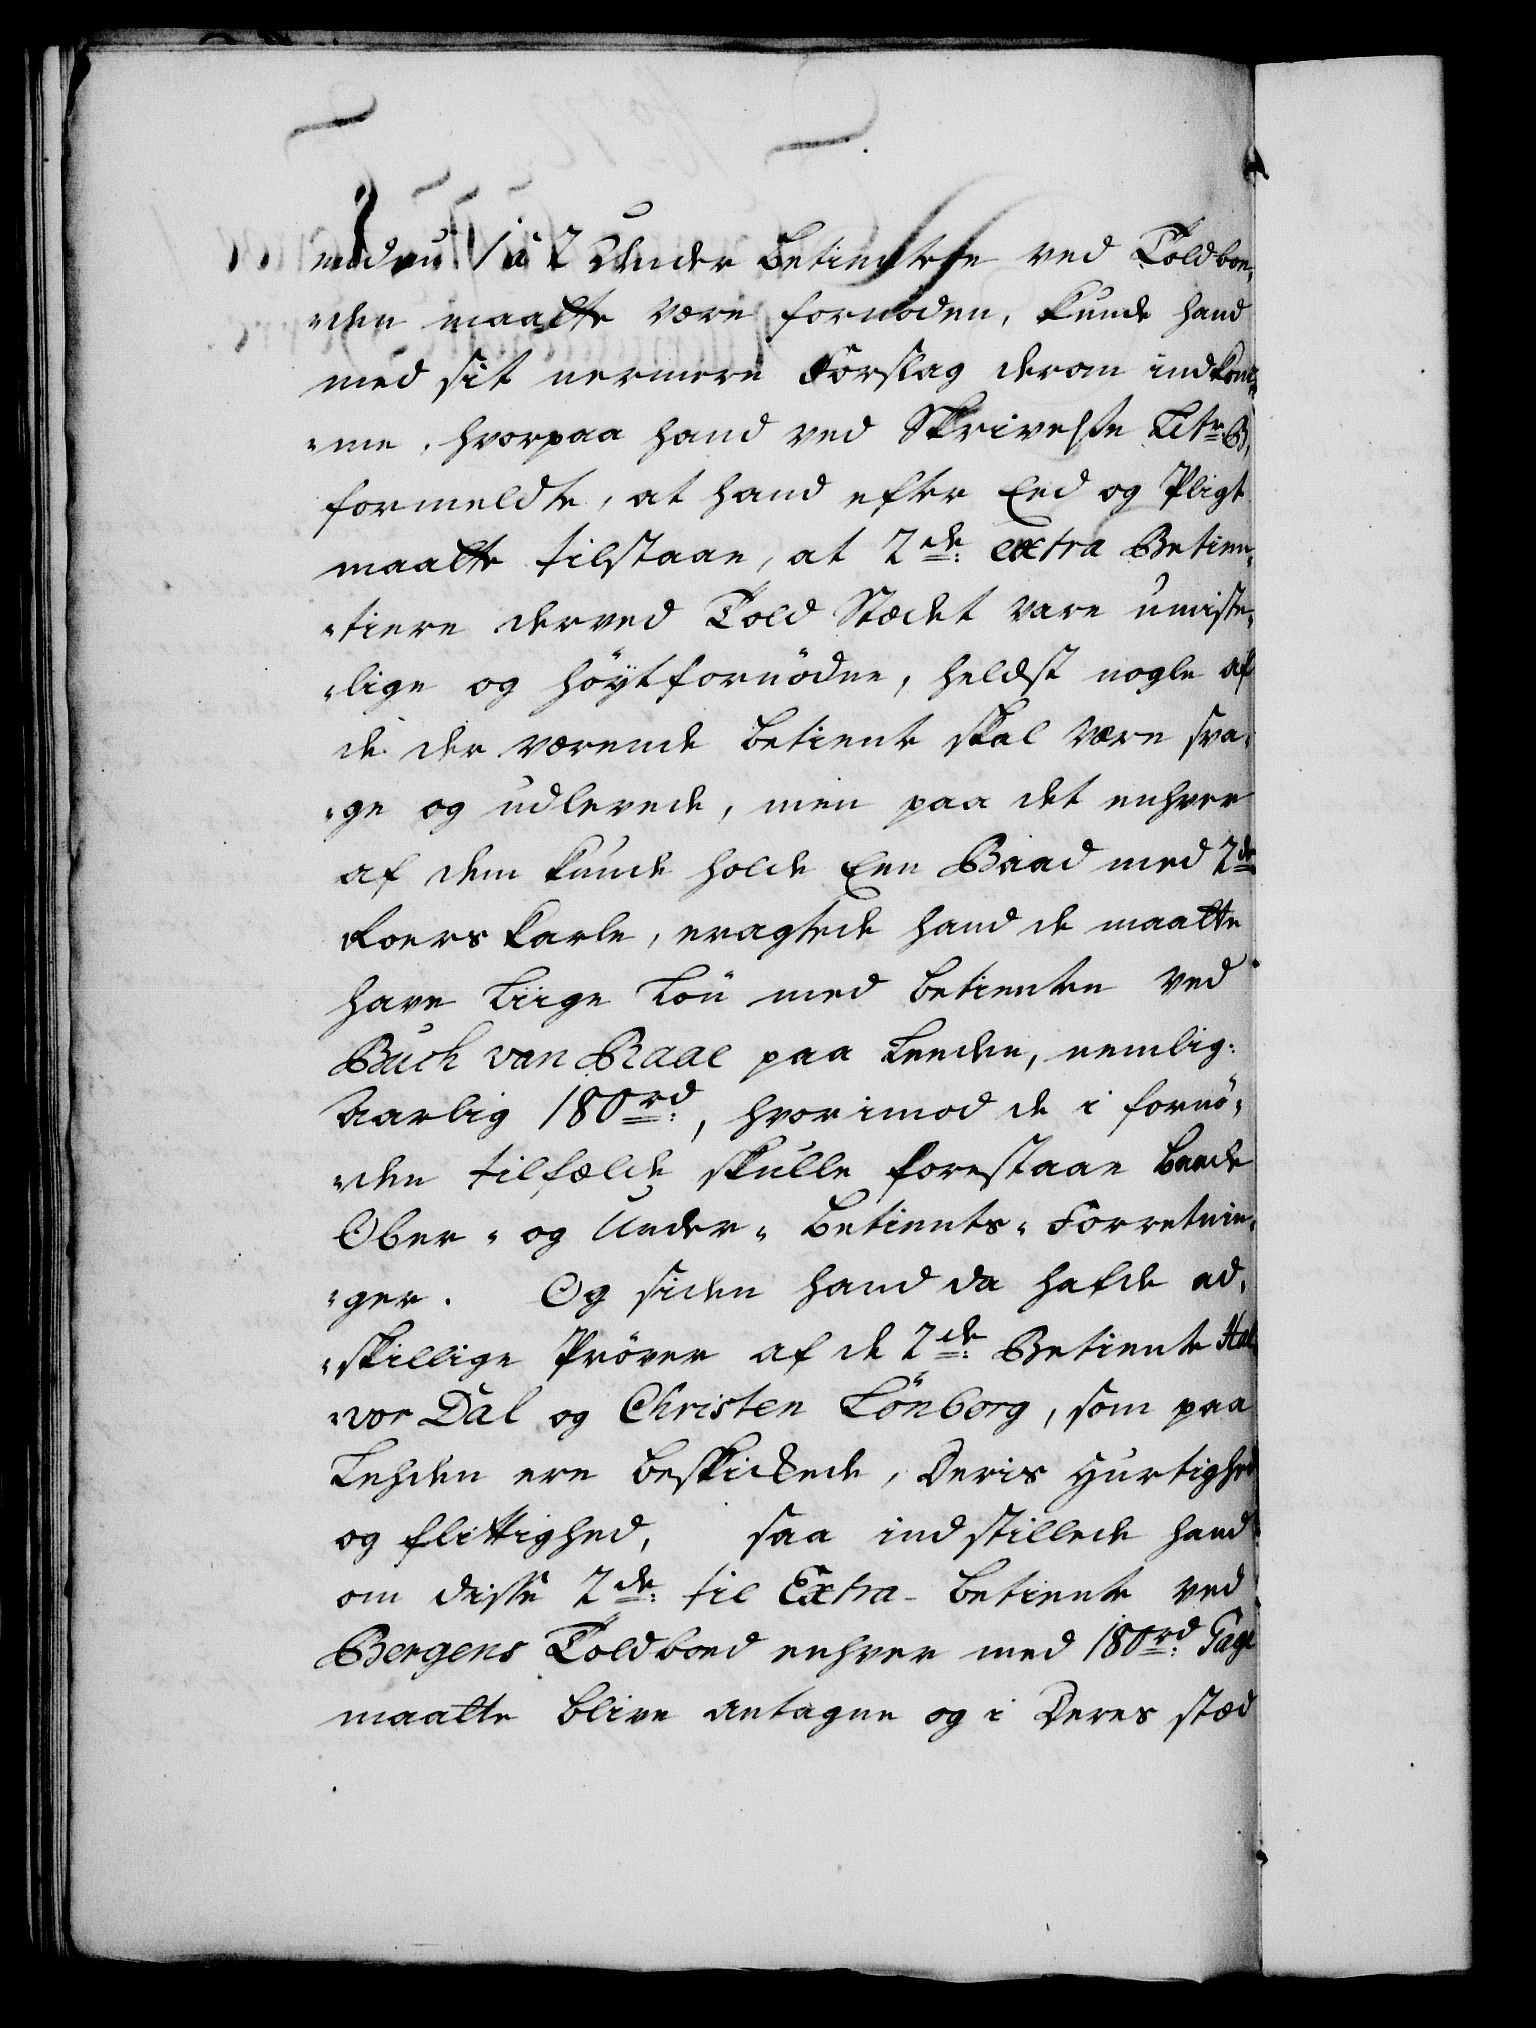 endnu 1 á 2 Under Betientere ved Toldboe,
"den maatte være fornoden, kunde hand
med sit nermere Forslag derom indkom,
"me, hvorpaa hand ved Skrivelse Litr. B,
formeldte, at hand efter Eed og Pligt
maatte tilstaae, at 2de: extra Betien,
"tiere derved Told Stædet vare umiste,
"lige og höytfornödne, heldst nogle af
de der værende Betiente skal være sva,
"ge og udlevede, men paa det enhver
af dem kunde holde Een Baad med 2de
Roers Karle, eragtede hand de maatte
have Liige Lön med Betienten ved
Buch van Raae paa Leeden, nemlig:
Aarlig 180 rd:, hvorimod de i fornö,
"den tilfælde skulle forestaae baade
Ober- og Under- Betients- Forretnin,
"ger. Og siden hand da hafde ad,
"skillige Pröver af de 2de: Betiente Hal,
"vor Dal og Christen Lönborg, som paa
Lehden ere beskickede, Deris Hurtighed
og flittighed, saa indstillede hand
om disse 2de: til Extra- Betiente ved
Bergens Toldboed enhver med 180 rd: Gage
maatte blive antagne og i Deres stæd